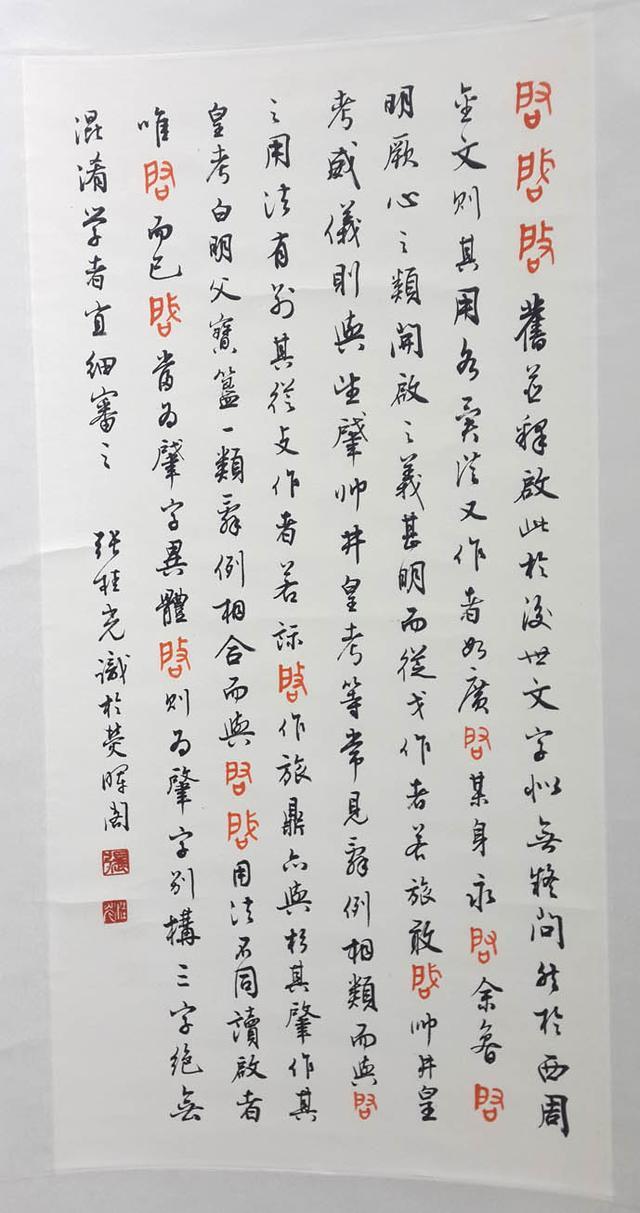 啓舊並釋啟此於後世文字似無疑問然於西周
金文則其用各異從又作者如廣某身永余魯
明厥心之類開啟之義甚明而從戈作者若旅敢帅井皇
考威儀則與肈帅井皇考等常見辭例相類而與
之用法有别其從攴作者若啓作旅鼎亦與杉其肇作其
皇考白明父寶簋一類辭例相合而與用法不同讀啟者
唯而已當為肈字異體啓則為肇字别構三字絕無
混淆学者宜細審之
張桂光識於熒暉閣
張
桂光